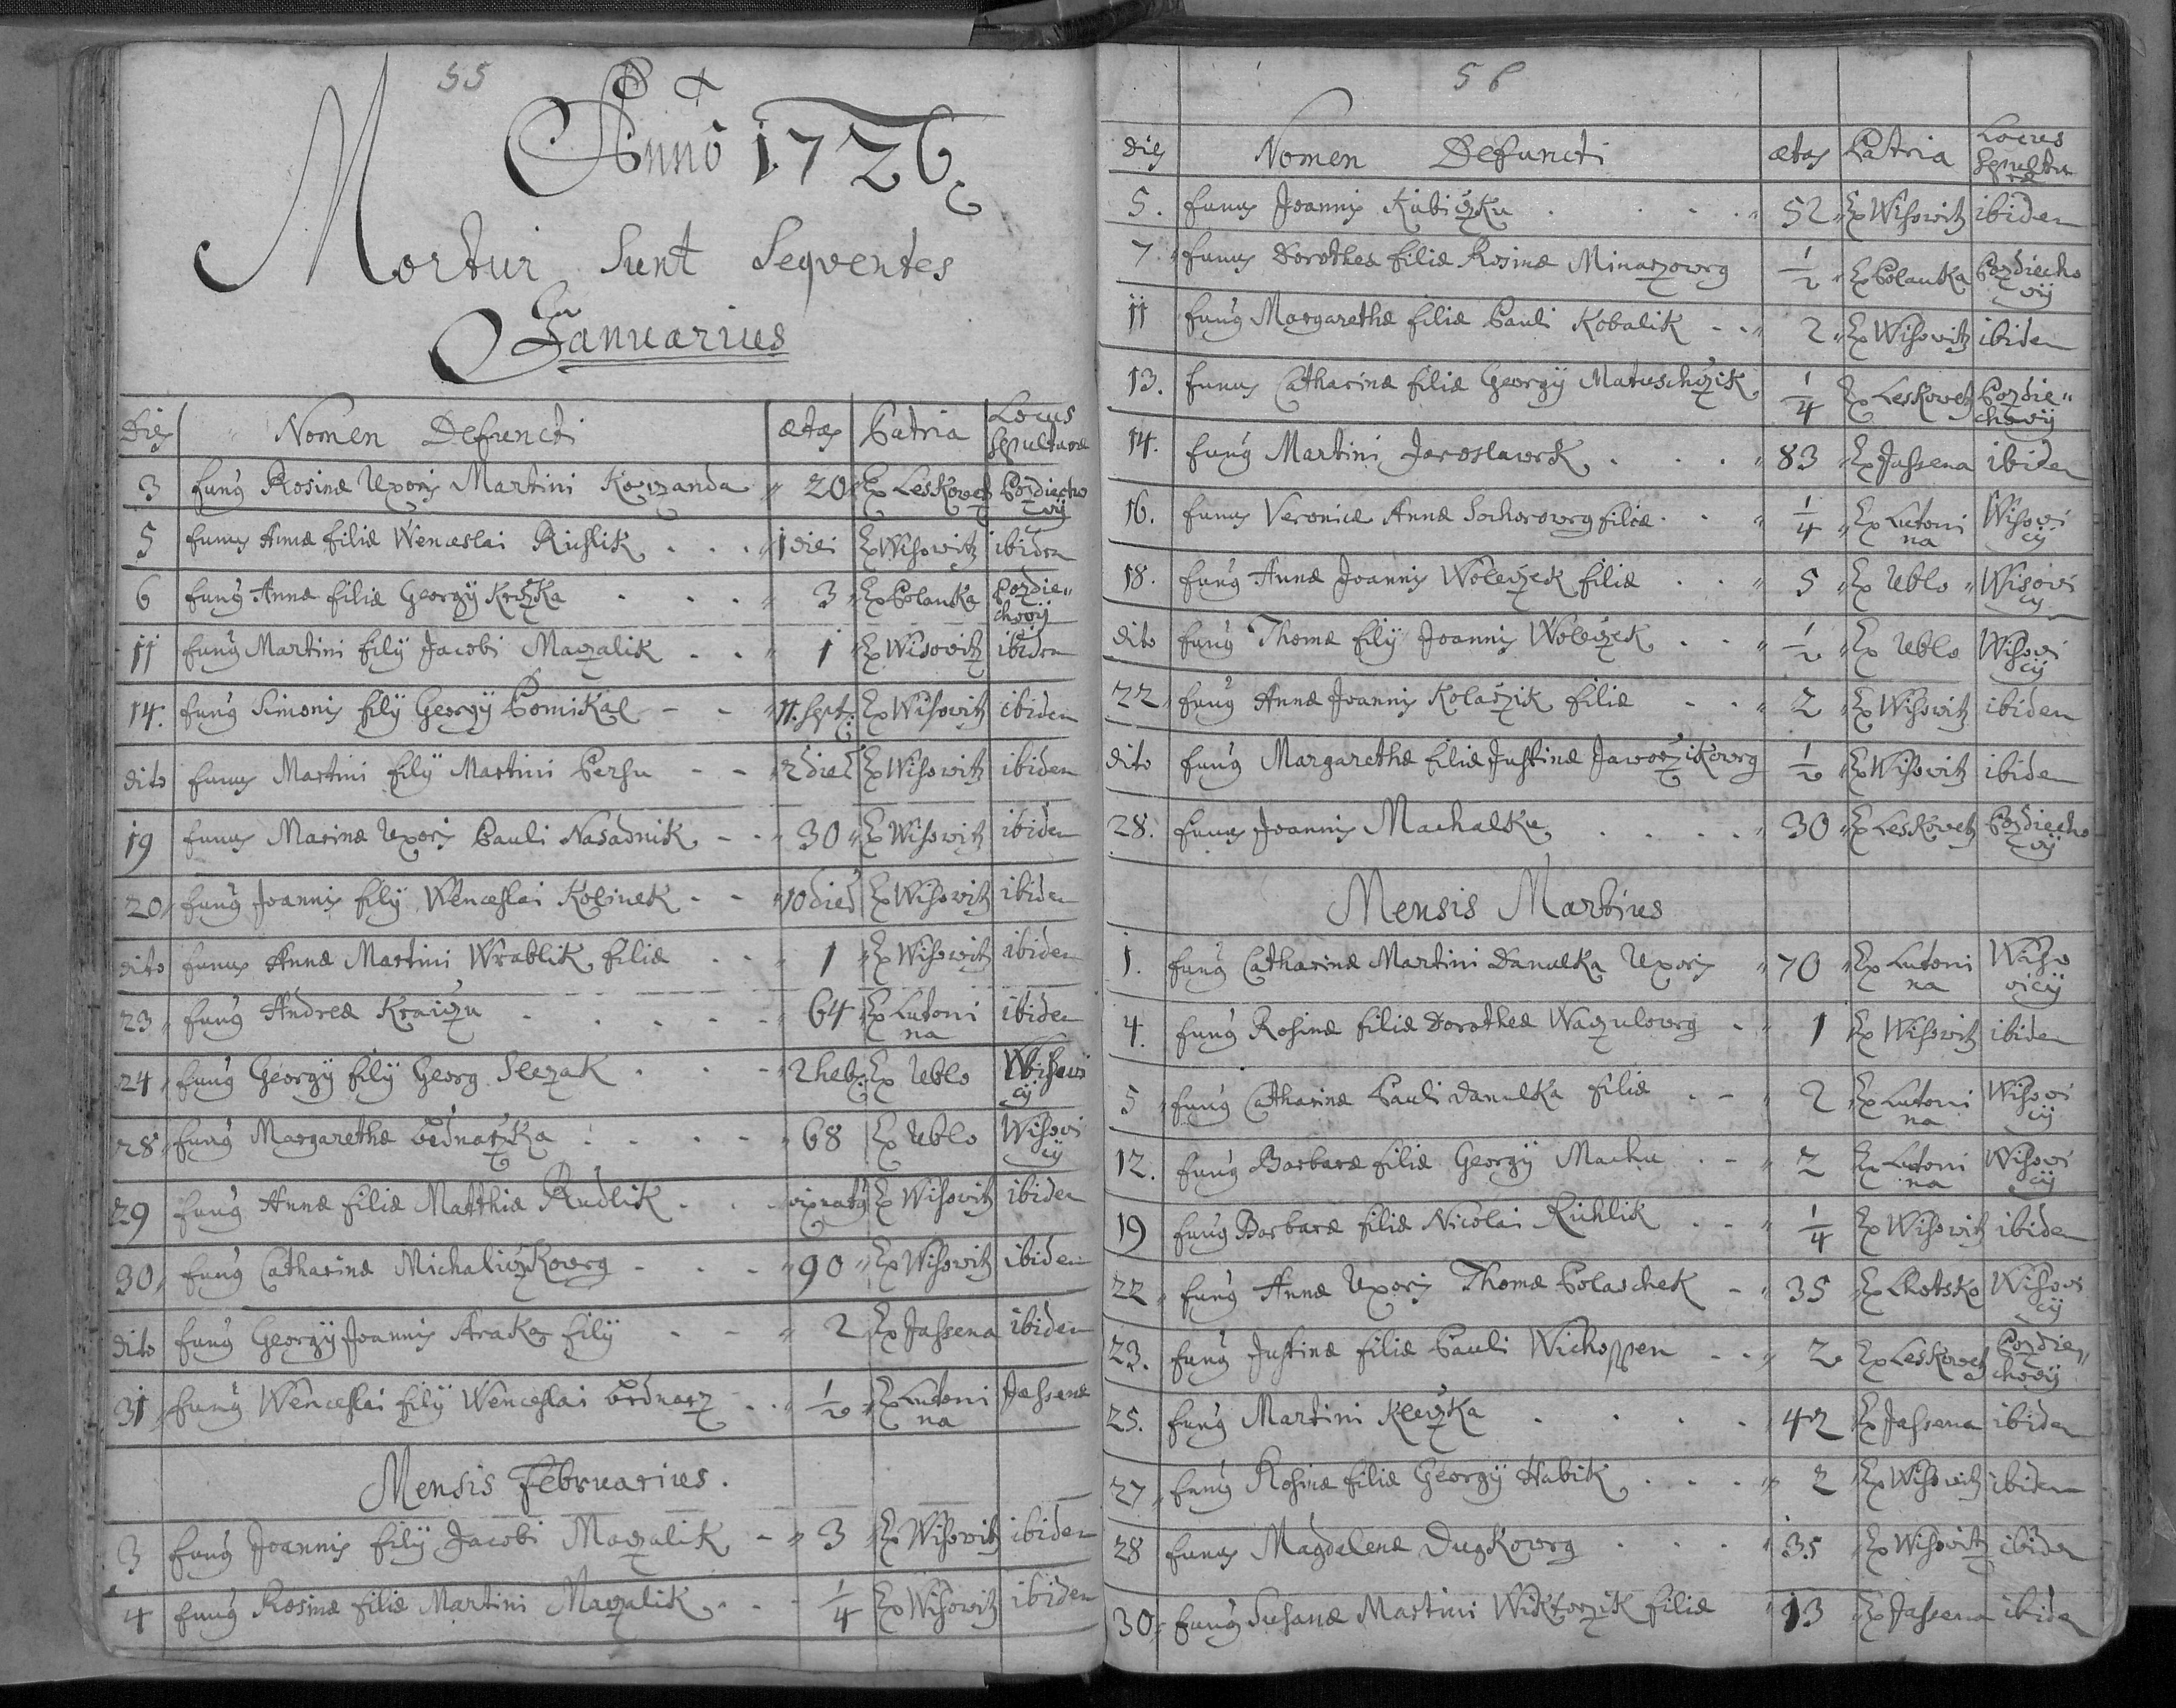 55
Anno 1726
Mortui Sunt Seqventes
Januarius
Dies Nomen Defuncti ætas Patria Locus Sepulturæ
3 funus Rosinæ Uxoris Martini Kowzanda 20 Ex Leskovetz Pozdiecho
vij
5 funus Annæ filiæ Wenceslai Richlik 1 diei Ex Wisowitz ibidem
6 funus Annæ filiæ Georgij Krizka 3 Ex Polanka Pozdie„
chovij
11 funus Martini filij Jacobi Maczalik 1 Ex Wisovitz ibidem
14. funus Simonis filij Georgij Pomikal 11. Sept: Ex Wisovitz ibidem
dito funus Martini filij Martini Persu 2 dies Ex Wisowitz ibidem
19 funus Marinæ Uxoris Pauli Nasadnik 30 Ex Wisowitz ibidem
20 funus Joannis filij Wenceslai Kolinek 10 dies Ex Wisowitz ibidem
dito funus Annæ Martini Wrablik filiæ 1 Ex Wisowitz ibidem
23 funus Andreæ Kraiczu 64 Ex Lutoni ibidem
na
24 funus Georgij filij Georg Slezak 2 heb: Ex Ublo Wisowi
cij
28 funus Margarethæ Bednarzka 68 Ex Ublo Wisovi
cij
29 funus Annæ filiæ Matthiæ Rudlik vix natus Ex Wisovitz ibidem
30 funus Catharinæ Michaliczkowy 90 Ex Wisovitz ibidem
dito funus Georgij Joannis Straka filij 2 Ex Jassena ibidem
31 funus Wenceslai filij Wenceslai Bednarz 1/2 Ex Lutoni Jassenæ
na
Mensis Februarius.
3 funus Joannis filij Jacobi Maczalik 3 Ex Wisowitz ibidem
4 funus Rosinæ filiæ Martini Maczalik 1/4 Ex Wisowitz ibidem
56
Dies Nomen Defuncti ætas Patria Locus
Sepultu
ræ
5. funus Joannis Kubiczku 52 Ex Wisowitz ibidem
7. funus Dorotheæ filiæ Rosinæ Minarzowy 1/2 Ex Polanka Pozdiecho
vij
11 funus Margarethæ filiæ Pauli Kobalik 2 Ex Wisovitz ibidem
13. funus Catharinæ filiæ Georgij Matuschczik 1/4 Ex Leskovetz Pozdie„
chovij
14. funus Martini Jaroslawek 83 Ex Jassena ibidem
16. funus Veronicæ Annæ Sochorowy filiæ 1/4 Ex Lutoni Wisovi
na cij
18. funus Annæ Joannis Woleczek filiæ 5 Ex Ublo Wisovi
cij
dito funus Thomæ filij Joannis Woleczek 1/2 Ex Ublo Wisovi
cij
22 funus Annæ Joannis Kolaczik filiæ 2 Ex Wisowitz ibidem
dito funus Margarethæ filiæ Justinæ Jaworzikowy 1/2 Ex Wisovitz ibidem
28. funus Joannis Machalku 30 Ex Leskovetz Pozdiecho
vij
Mensis Martius
1. funus Catharinæ Martini Danulka Uxoris 70 Ex Lutoni Wiso
na vicij
4. funus Rosinæ filiæ Dorotheæ Waczulowy 1 Ex Wisowitz ibidem
5 funus Catharinæ Pauli Danulka filiæ 2 Ex Lutoni Wisovi
na cij
12. funus Barbaræ filiæ Georgij Machu 2 Ex Lutoni Wisovi
na cij
19 funus Barbaræ filiæ Nicolai Richlik 1/4 Ex Wisowitz ibidem
22 funus Annæ Uxoris Thomæ Polaschek 35 Ex Lhotsko Wisovi
cij
23. funus Justinæ filiæ Pauli Wichoppen 2 Ex Leskovetz Pozdie„
chovij
25. funus Martini Kleczka 42 Ex Jassena ibidem
27 funus Rosinæ filiæ Georgij Habik 2 Ex Wisowitz ibidem
28 funus Magdalenæ Dugkowy 35 Ex Wisovitz ibidem
30 funus Susanæ Martini Wiktorzik filiæ 13 Ex Jassena ibidem